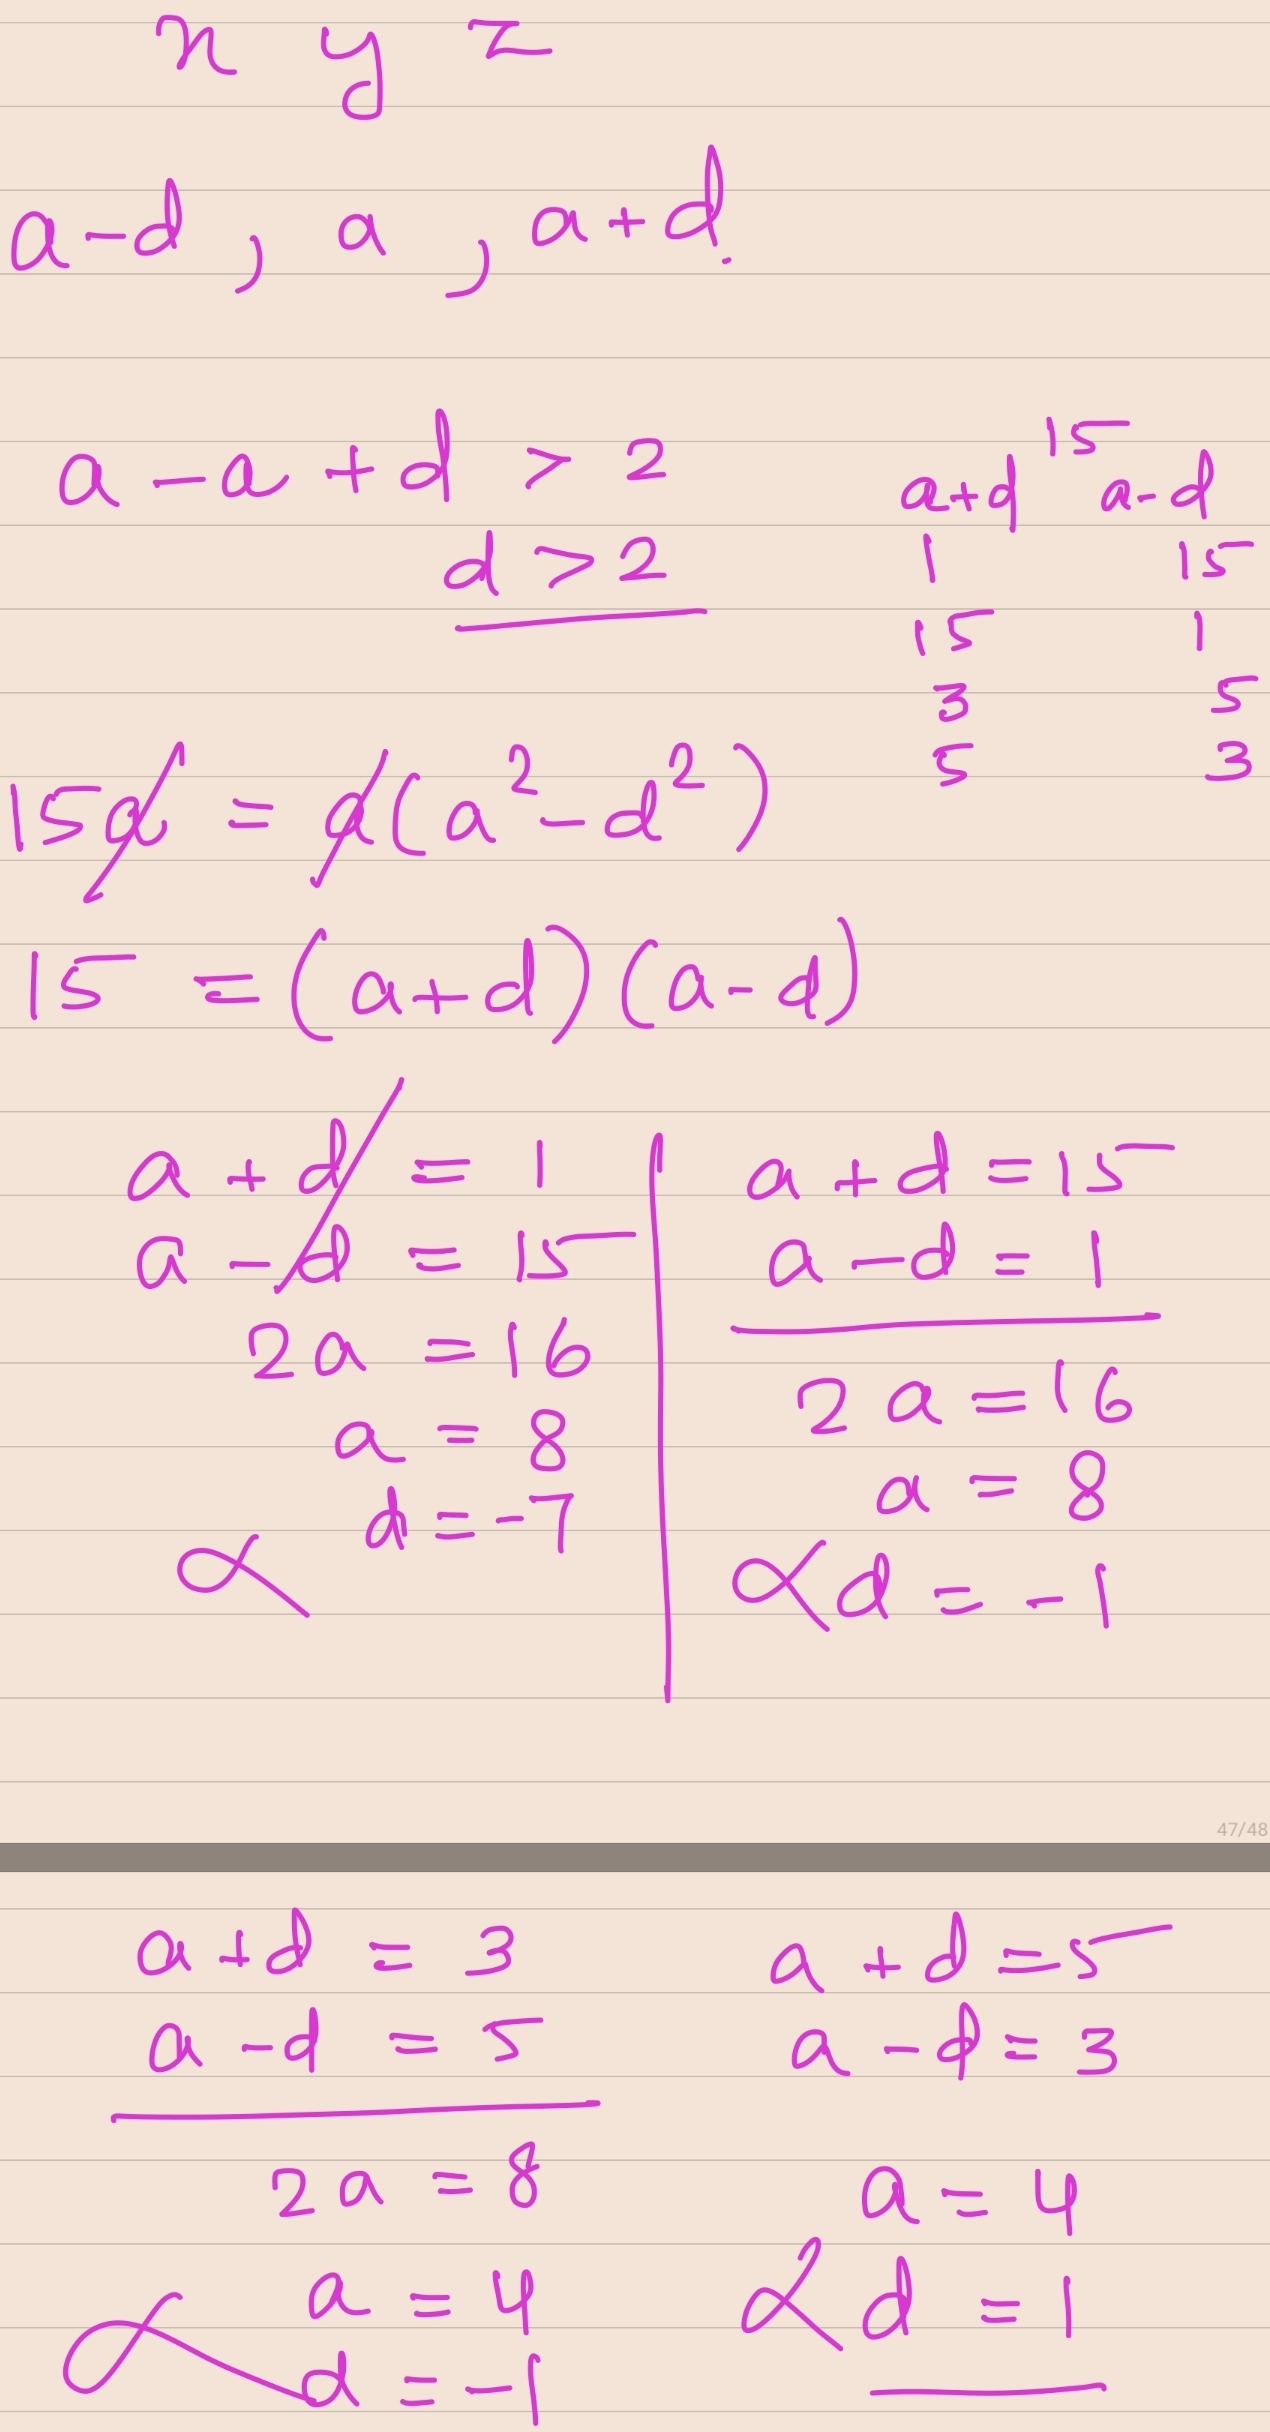 x y z
a-d , a , a+d.
a - a + d > 2
d > 2
15
a+d a-d
1 15
15 1
3 5
5 3
15a = a(a²-d²)
15 = (a+d)(a-d)
a + d = 1
a - d = 15
2a = 16
a = 8
d = -7
a + d = 15
a - d = 1
2a = 16
a = 8
d = -1
47/48
a + d = 3
a - d = 5
2a = 8
a = 4
d = -1
a + d = 5
a - d = 3
a = 4
d = 1